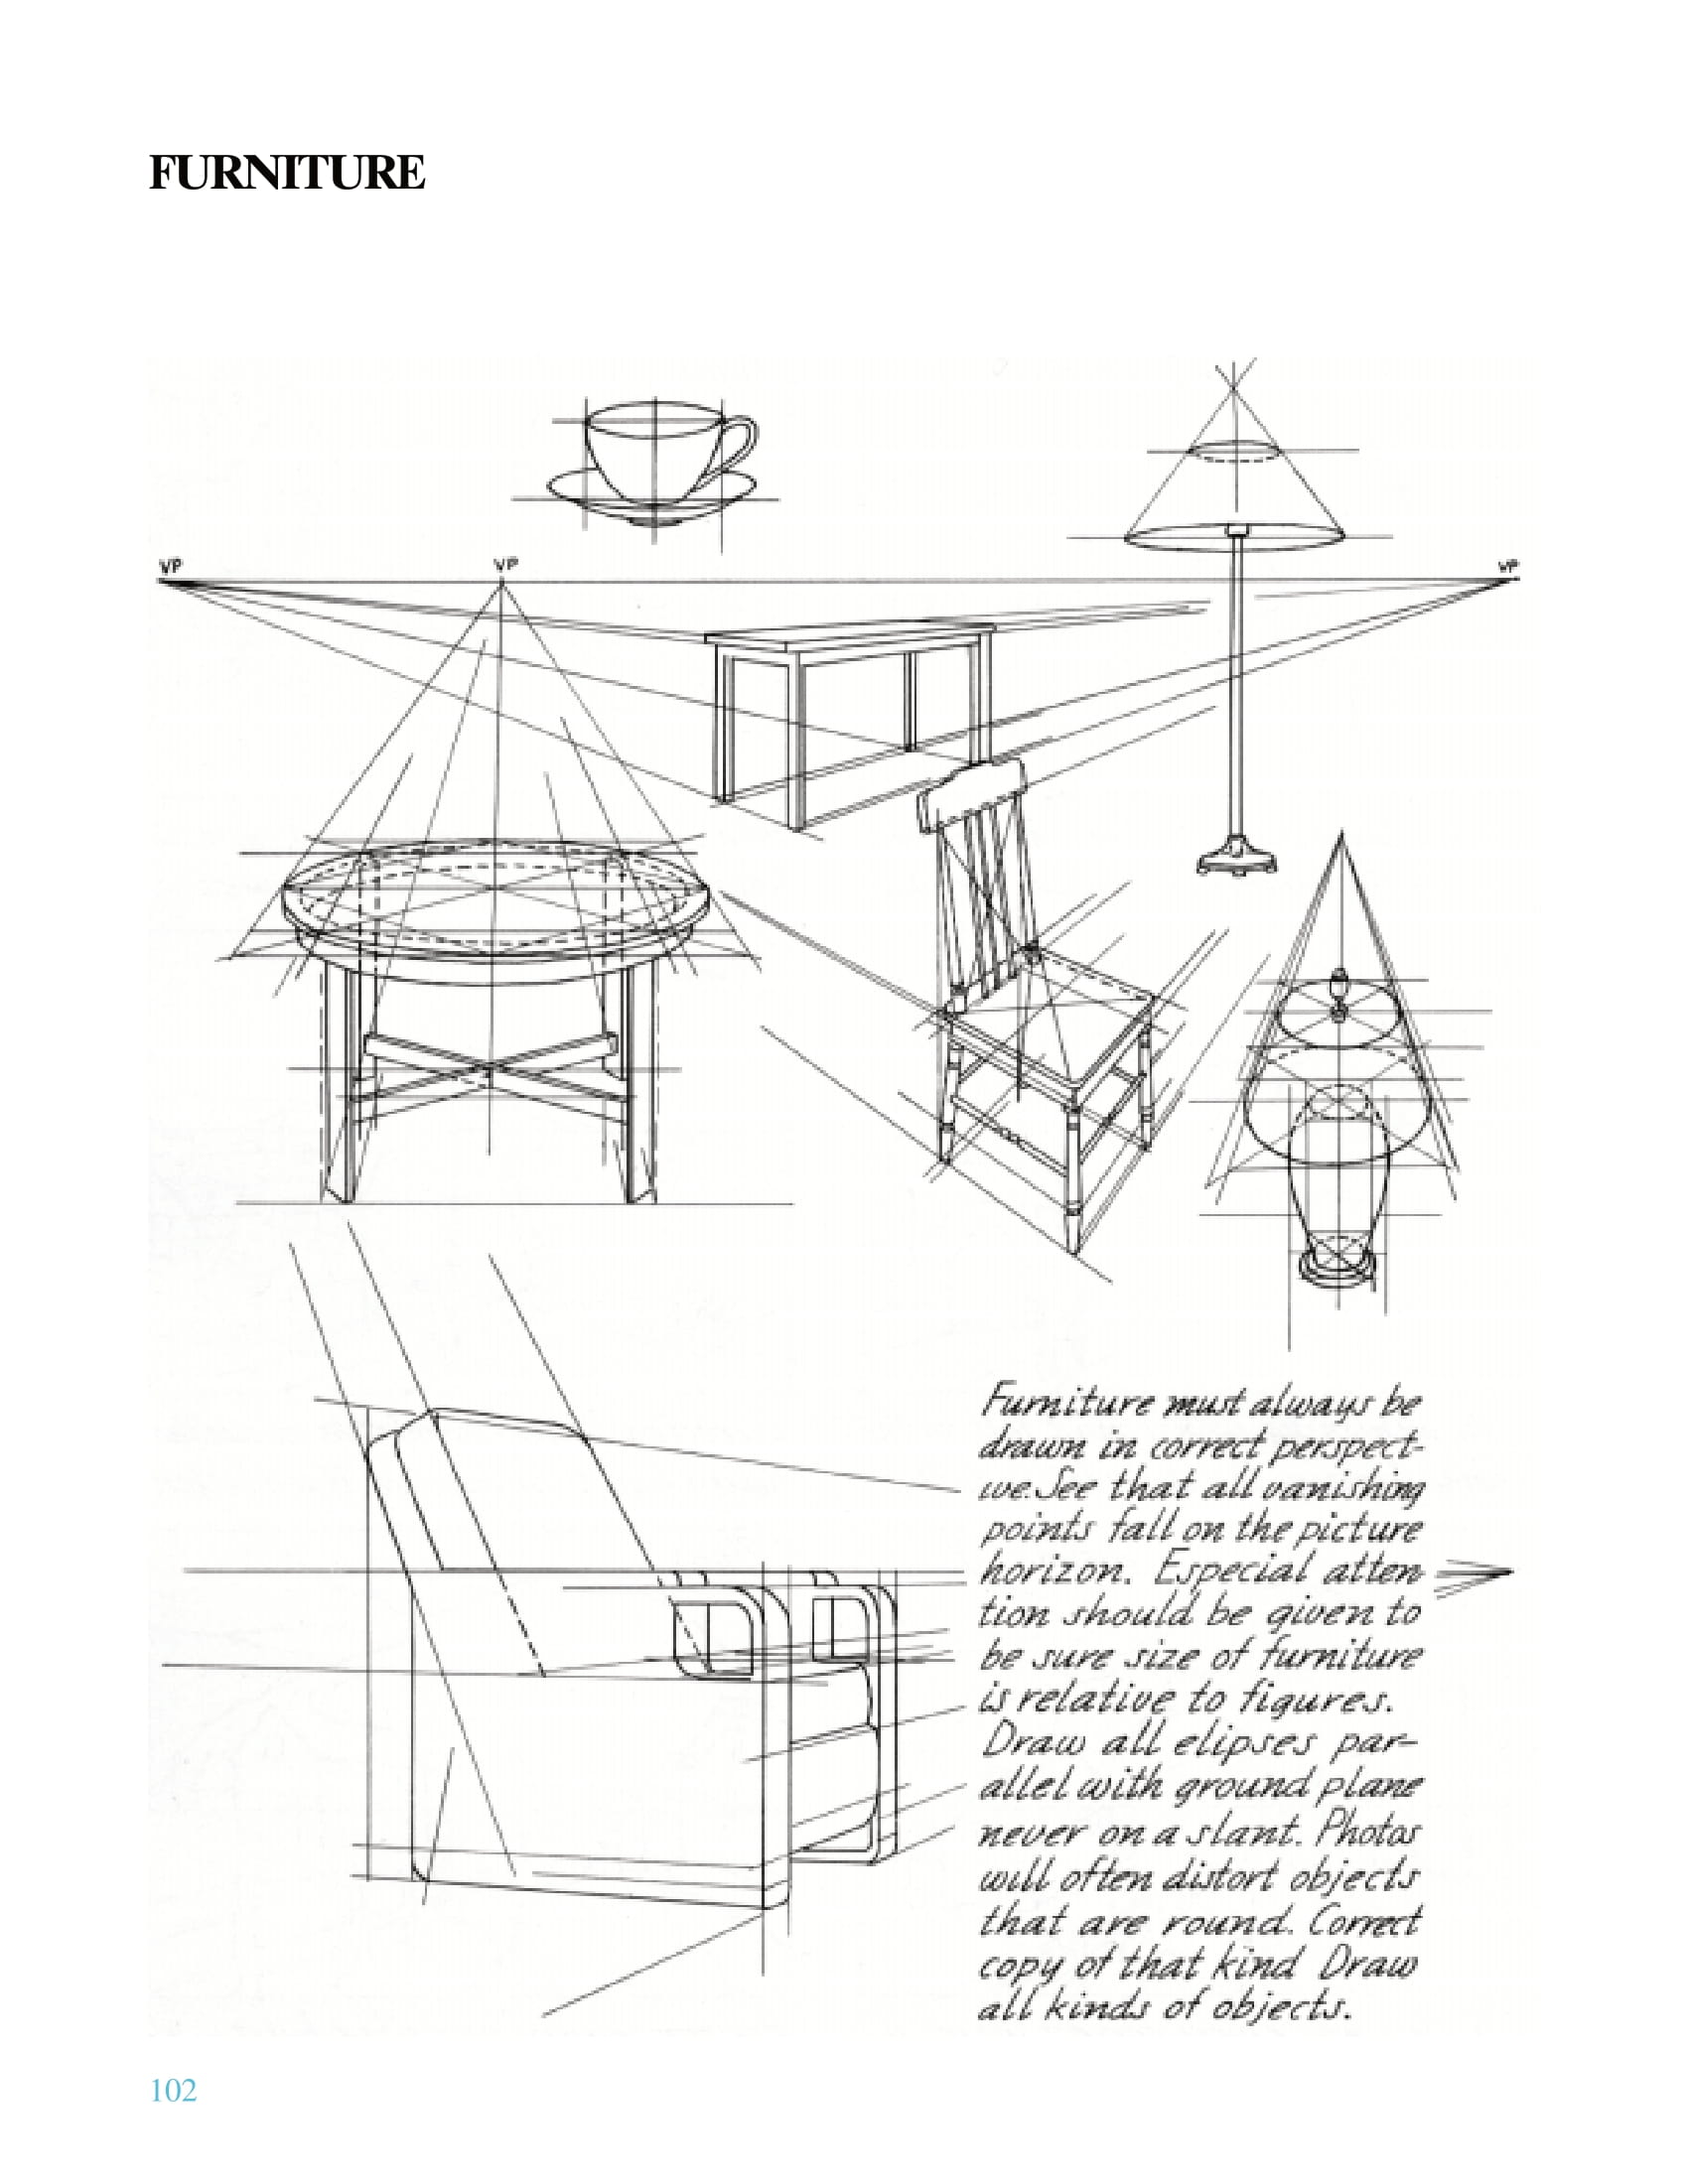 FURNITURE
VP
VP
VP
Furniture must always be
drawn in correct perspect-
ive. See that all vanishing
points fall on the picture
horizon. Especial atten
tion should be given to
be sure size of furniture
is relative to figures.
Draw all elipses par-
allel with ground plane
never on a slant. Photos
will often distort objects
that are round. Correct
copy of that kind Draw
all kinds of objects.
102